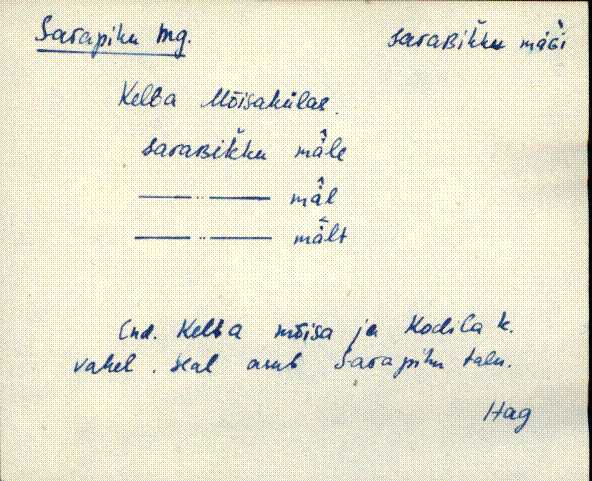 Sarapiku mg. saraʙìk̆ku mäɢ̀i
Keltsa Mõisakülas.
saraʙìk̆ku mä̂le
—— ·· —— mä̂l
—— ·· —— mä̂lt
End. Keltsa mõisa ja Kodila k.
vahel. Seal asub Sarapiku talu.
Hag